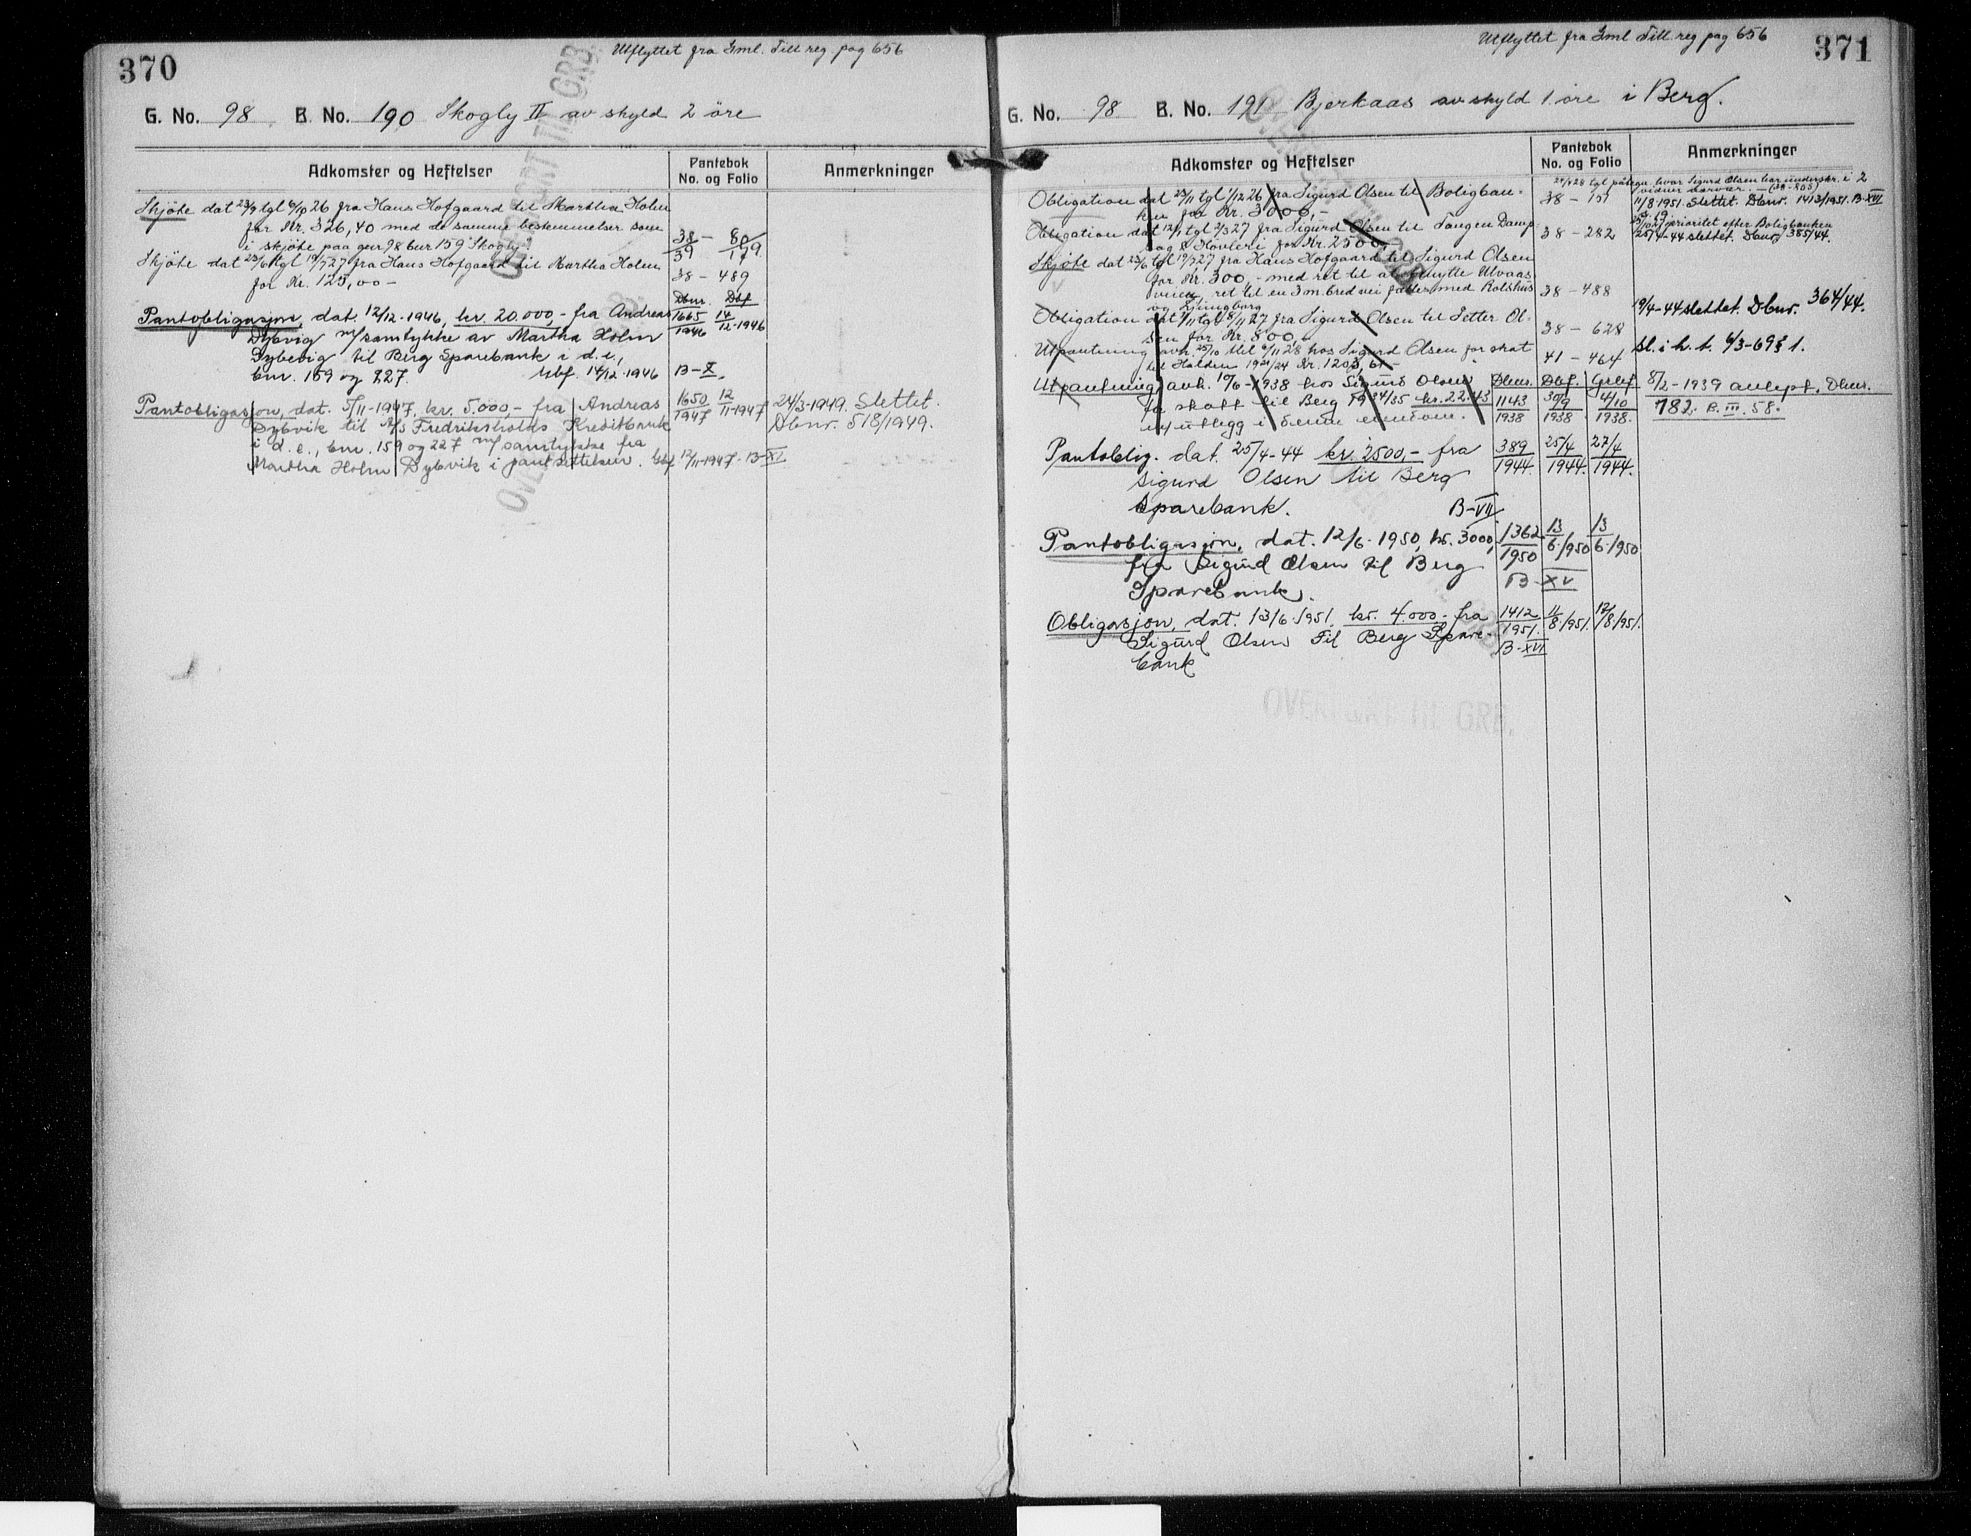 370
Utflyttet fra Gml. Till reg. pag 656
G. No. 98 B. No. 190 Skogly II av skyld 2 öre
Adkomster og Heftelser
Pantebok
No. og Folio
Anmerkninger
Skjöte dat 23/9 tgl 6/10 26 fra Hans Hofgaard til Martha Holm
for Kr. 326,40 med de samme bestemmelser som
i skjöte paa gnr 98 bnr 159 Skogly.
38 – 80
39 – 179
Skjöte dat 23/6 tgl 19/7 27 fra Hans Hofgaard til Martha Holm
for Kr. 125,00 –
38 – 489
Dbnr. Dbf
Pantobligasjon, dat. 12/12-1946, kr. 20.000,- fra Andreas
1665/1946 14/12-1946
Dybvig m/samtykke av Martha Holm
Dybvig til Berg Sparebank i d.e.,
bnr. 159 og 227. Gbf. 14/12-1946 B-X.
Pantobligasjon, dat. 5/11-1947, kr. 5.000,- fra Andreas
1650/1947 12/11-1947
24/3-1949. Slettet.
Dybvik til A/S Fredrikshalds Kreditbank
Dbnr. 518/1949.
i d.e., bnr. 159 og 227 m/samtykke fra
Martha Holm Dybvik i pantsettelsen. Gbf 12/11-1947. B-XI
OVERFØRT TIL GRB.
371
Utflyttet fra Gml Till reg pag 656
G. No. 98 B. No. 191 Bjerkaas av skyld 1 öre i Berg.
Adkomster og Heftelser
Pantebok
No. og Folio
Anmerkninger
Obligation dat 23/11 tgl 1/12 26 fra Sigurd Olsen til Boligban-
ken for Kr. 3000,-
38 – 151
tgl påtegn. hvor Sigurd Olsen har underskr. i 2
vidners nærvær.
11/8 1951. Slettet. Dbnr. 1413/1951. B-XVI
Obligation dat 12/1 tgl 2/3 27 fra Sigurd Olsen til Tangen Damp-
sag & Hövleri for Kr. 2500,
38 – 282
prioritet efter Boligbanken
25/4-44 slettet. Dbnr. 385/44.
Skjöte dat 23/6 tgl 19/7 27 fra Hans Hofgaard til Sigurd Olsen
for Kr. 300,- med ret til at benytte Ulvaas
veien, ret til en 3 m. bred vei fælles med Rolshus
og Ljungborg
38 – 488
Obligation dat 1/11 tgl 8/11 27 fra Sigurd Olsen til Petter Ol-
sen for Kr. 800,-
38 – 628
19/4-44 slettet. Dbnr. 364/44.
Utpantning avh. 25/10 tgl 6/11 28 hos Sigurd Olsen for skat
til Halden 1921/24 Kr. 1203,61
41 – 464
Sl. i h. t. 6/3-69 § 1.
Utpantning avh. 10/6-1938 hos Sigurd Olsen
for skatt til Berg 1934/35 kr. 22.43
ny utlegg i denne eiendom.
Dbnr. Dbf. Grbf.
1143/1938 30/9 1938 4/10 1938.
8/2-1939 avlyst. Dbnr.
182. P. III. 58.
Pantoblig. dat. 25/4-44 kr. 2500,- fra
389/1944. 25/4 1944. 27/4 1944.
Sigurd Olsen til Berg
Sparebank. B-VII
Pantobligasjon, dat. 12/6-1950, kr. 3000,
1362/1950 13/6-1950 13/6-1950
fra Sigurd Olsen til Berg
Sparebank.
B-XV
Obligasjon, dat. 13/6-1951. kr. 4.000,- fra
1412/1951. 11/8 1951. 12/8 1951.
Sigurd Olsen til Berg Spare-
B-XVI
bank
OVERFØRT TIL GRB.